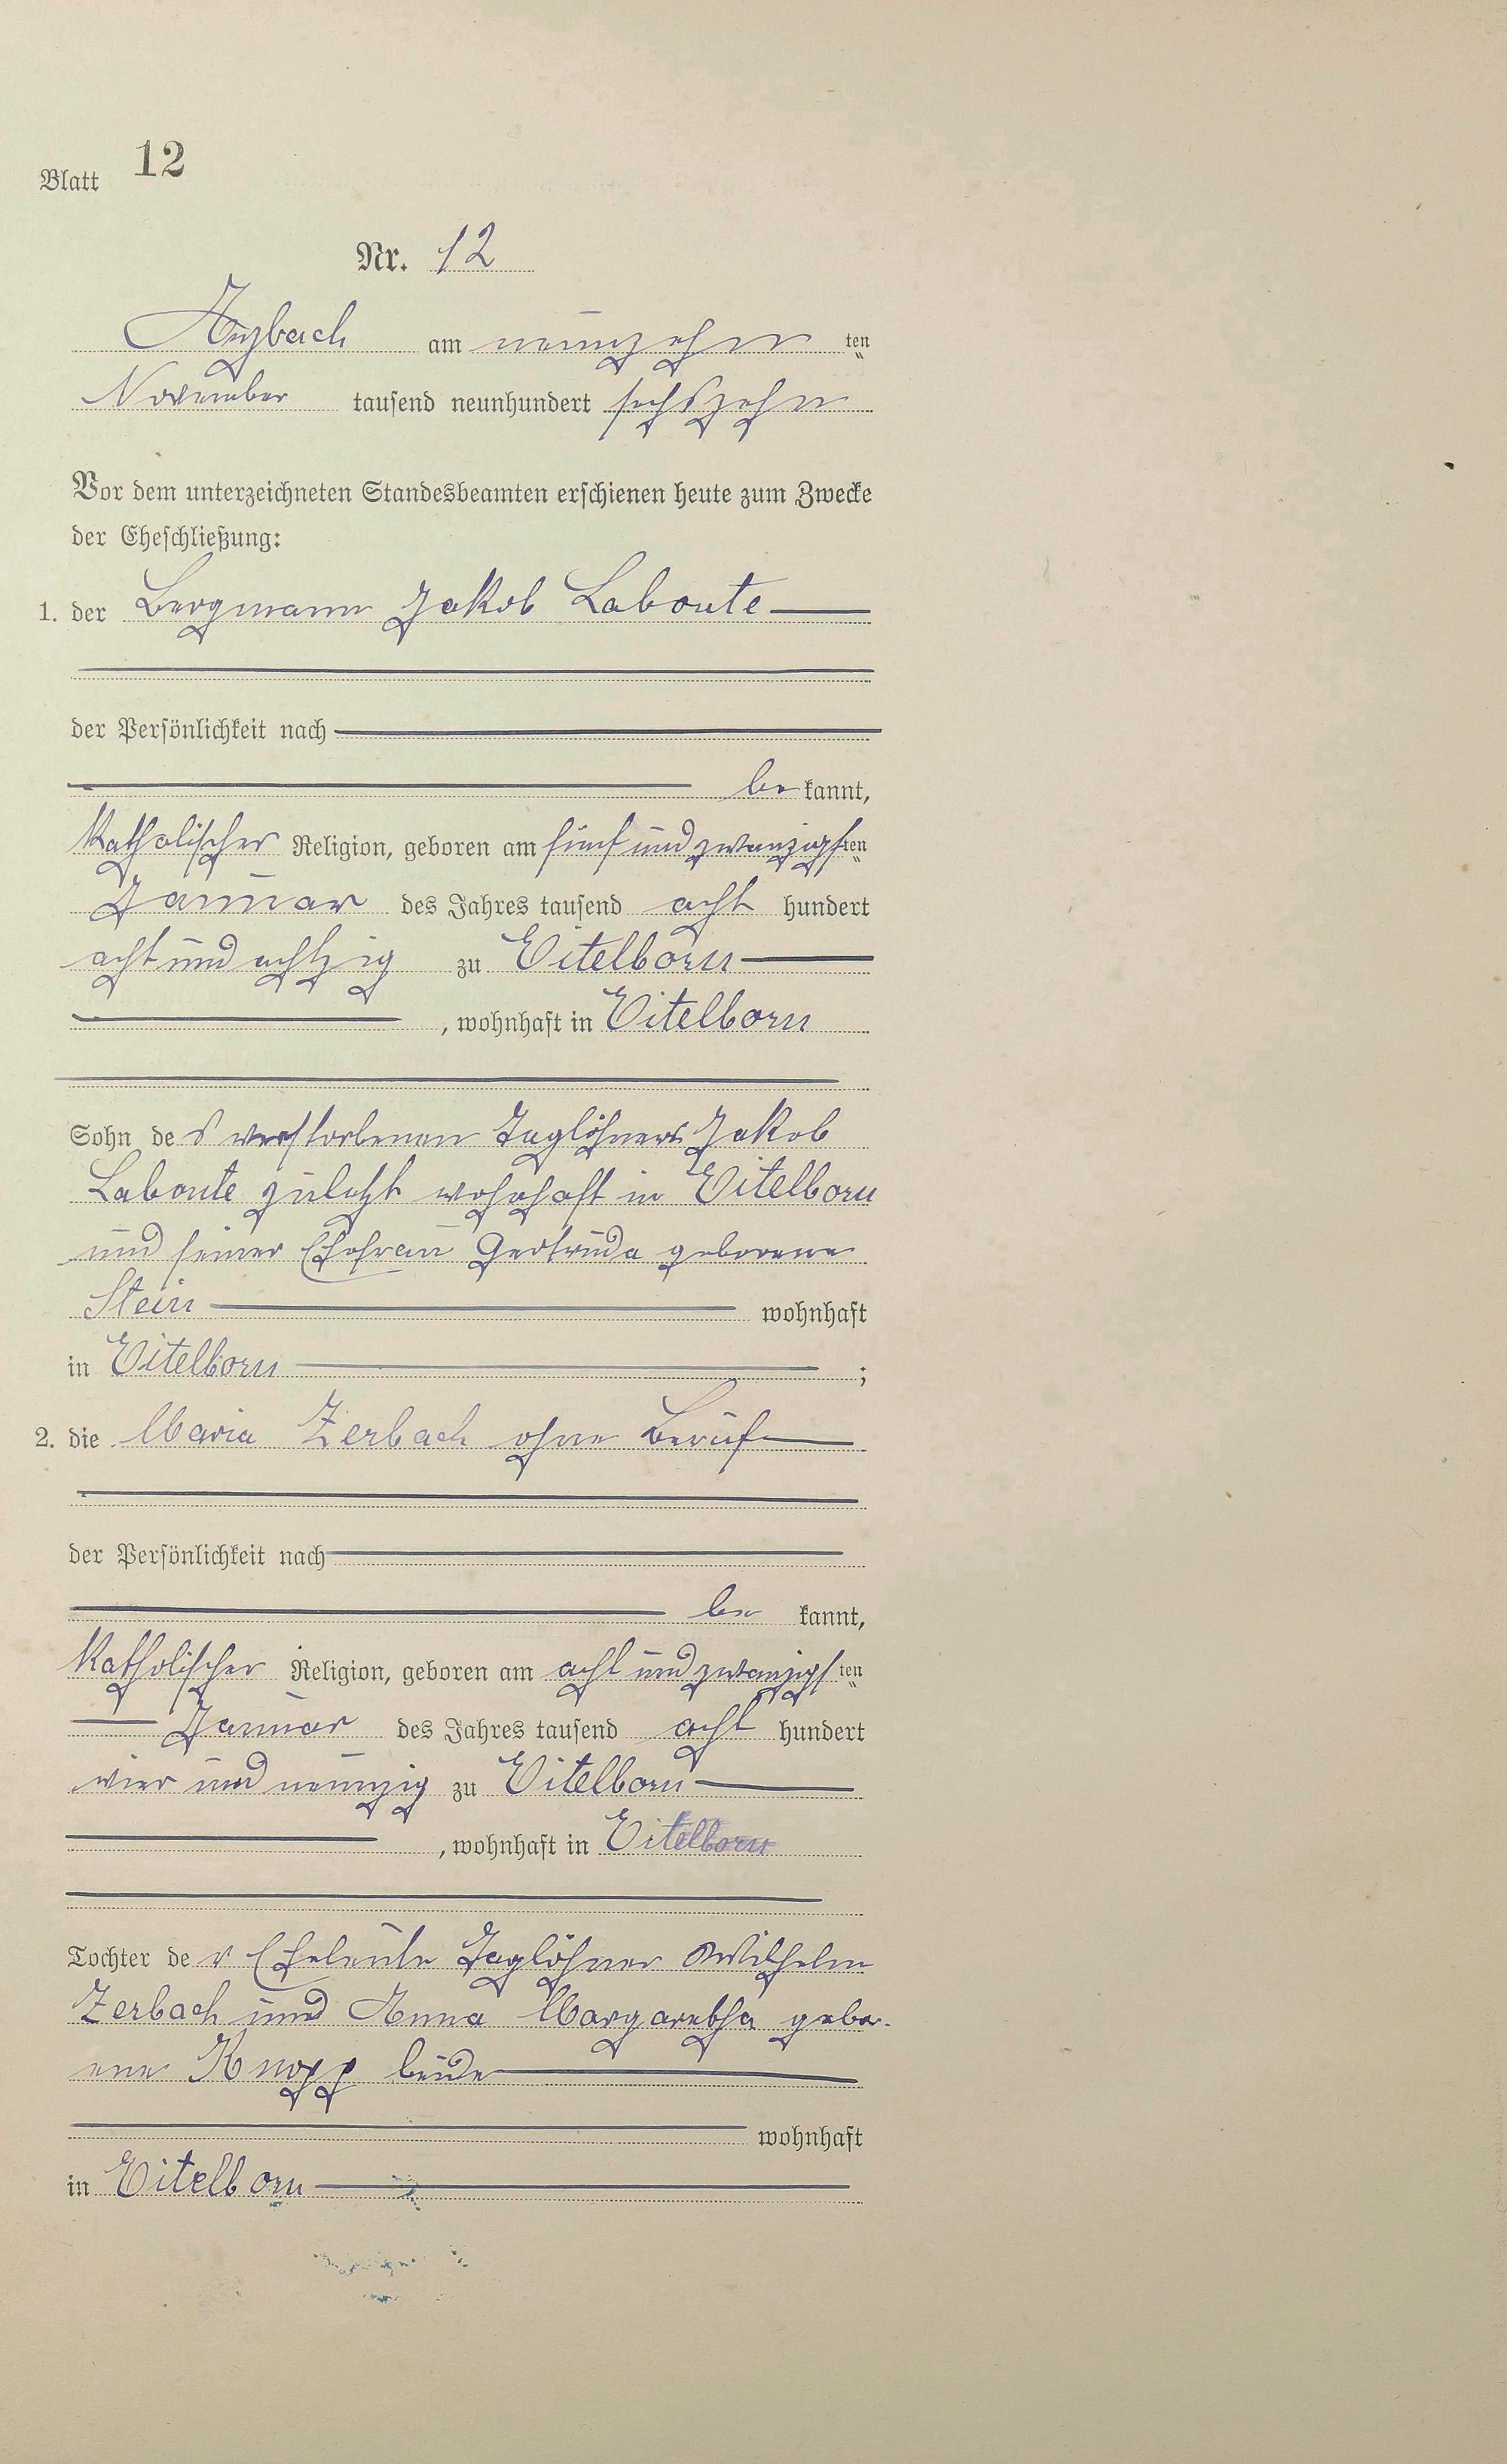 Blatt 12
Nr. 12
Arzbach am neunzehn ten
November tausend neunhundert sechszehn
Vor dem unterzeichneten Standesbeamten erschienen heute zum Zwecke
der Eheschließung:
1. der Bergmann Jakob Labonte
der Persönlichkeit nach
be kannt,
katholischer Religion, geboren am fünf und zwanzigsten
Januar des Jahres tausend acht hundert
acht und achtzig zu Eitelborn
, wohnhaft in Eitelborn
Sohn des verstorbenen Taglöhners Jakob
Labonte zuletzt wohnhaft in Eitelborn
und seiner Ehefrau Gertruda geborene
Stein wohnhaft
in Eitelborn ;
2. die Maria Zerbach ohne Beruf
der Persönlichkeit nach
be kannt,
katholischer Religion, geboren am acht und zwanzigsten
Januar des Jahres tausend acht hundert
vier und neunzig zu Eitelborn
, wohnhaft in Eitelborn
Tochter der Eheleute Taglöhner Wilhelm
Zerbach und Anna Margaretha gebor-
ene Knopp beide
wohnhaft
in Eitelborn